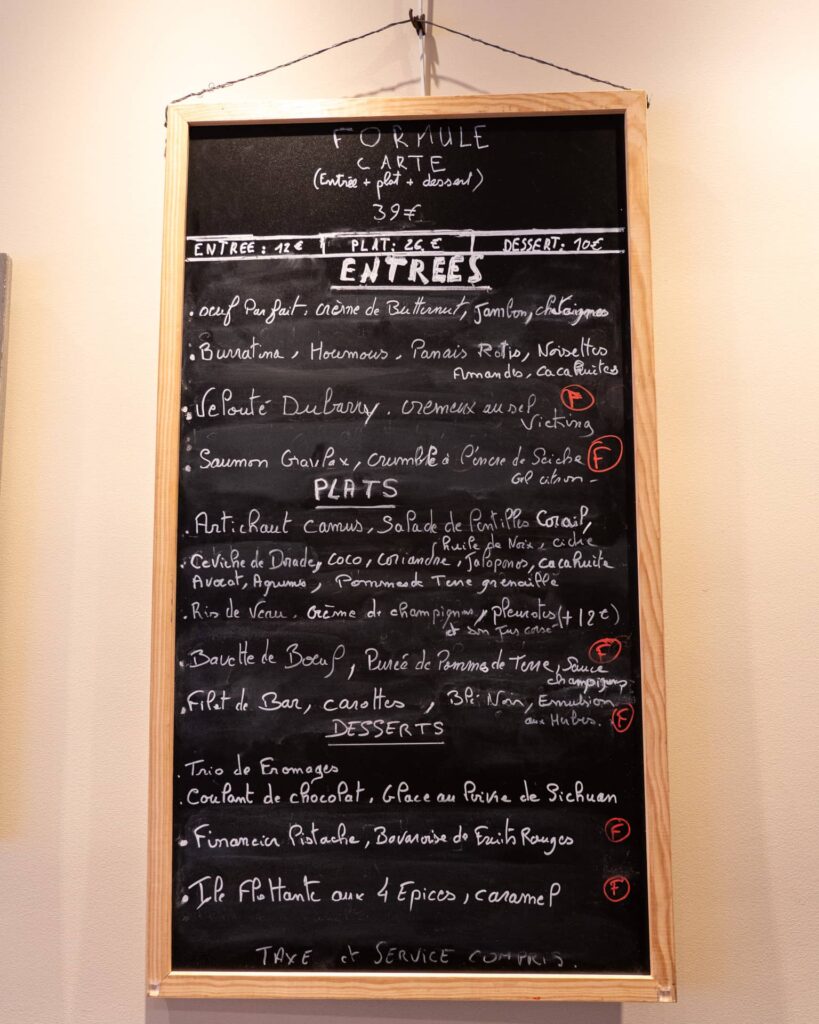 FORMULE
CARTE
(Entrée + plat + dessert)
39€
ENTREE : 12€ PLAT: 26 € DESSERT: 10€
ENTREES
. oeuf Parfait. crème de Butternut, Jambon, chataignes
. Burratina, Houmous. Panais Rotis, Noisettes
Amandes, cacahuites
. Velouté Dubarry. cremeux au sel F
Vicking
. Saumon Gravlax, crumble à l'encre de Seiche F
Gel citron -
PLATS
. Artichaut camus, Salade de lentilles Corail,
huile de Noix,
. Ceviche de Dorade, Coco, Coriandre, Jalopenos, cacahuite
Avocat, Agrumes, Pommes de Terre grenaille
. Ris de Veau. crème de champignons, pleurotes (+12€)
et son Jus corsé
. Bavette de Boeuf, Purée de Pommes de Terre, Sauce F
champignons
. Filet de Bar, carottes, Blé Noir, Emulsion
aux Herbes. F
DESSERTS
. Trio de Fromages
. Coulant de chocolat, Glace au Poivre de Sichuan
. Financier Pistache, Bavaroise de Fruits Rouges F
. Ile Flottante aux 4 Epices, caramel F
TAXE et SERVICE COMPRIS.